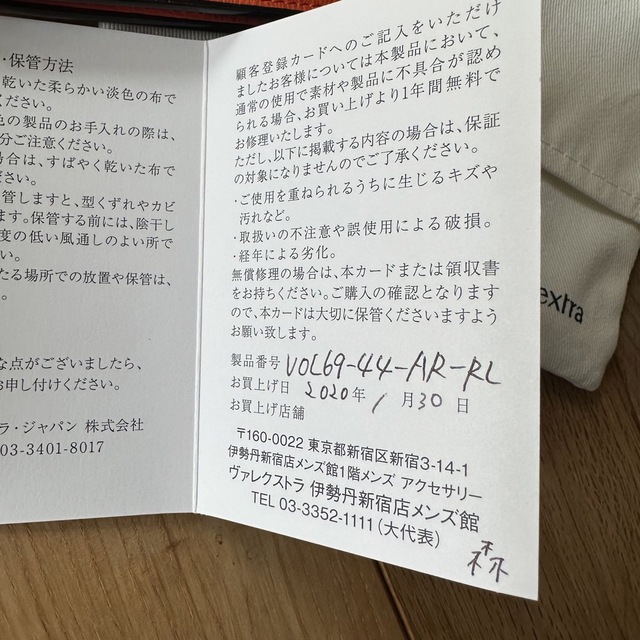 ・保管方法
乾いた柔らかい淡色の布で
ください。
色の製品のお手入れの際は、
分ご注意ください。
場合は、すばやく乾いた布で
ださい。
管しますと、型くずれやカビ
ます。保管する前には、陰干し
度の低い風通しのよい所で
い。
たる場所での放置や保管は、
。
な点がございましたら、
お申し付けください。
ラ・ジャパン 株式会社
03-3401-8017
顧客登録カードへのご記入をいただけ
ましたお客様については本製品において、
通常の使用で素材や製品に不具合が認め
られる場合、お買い上げより1年間無料で
お修理いたします。
ただし、以下に掲載する内容の場合は、保証
の対象になりませんのでご了承ください。
・ご使用を重ねられるうちに生じるキズや
汚れなど。
・取扱いの不注意や誤使用による破損。
・経年による劣化。
無償修理の場合は、本カードまたは領収書
をお持ちください。ご購入の確認となります
ので、本カードは大切に保管くださいますよう
お願い致します。
製品番号 VOL69-44-AR-RL
お買上げ日 2020年 1月30日
お買上げ店舗
〒160-0022 東京都新宿区新宿3-14-1
伊勢丹新宿店メンズ館1階メンズ アクセサリー
ヴァレクストラ 伊勢丹新宿店メンズ館
TEL 03-3352-1111(大代表)
森
extra